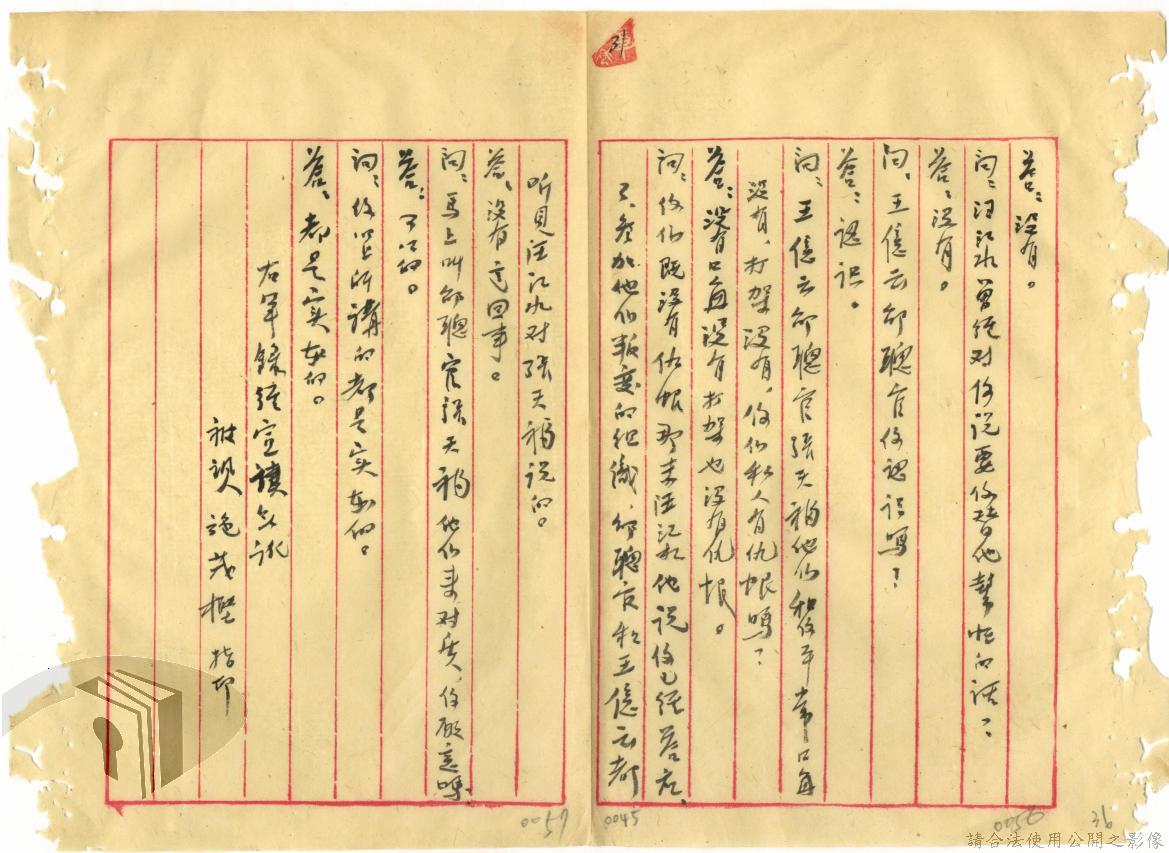 答：没有。
问：汪江水曾经对你说要你替他幫忙的话？
答：没有。
问、王億云邹聰官你認识嗎？
答：認识。
问：王億云邹聰官張天福他们和你平常口角
没有，打架没有，你们私人有仇恨嗎？
答：没有口角没有打架也没有仇恨。
问：你们既没有仇恨那末汪江水他说你已经答应、
参加他们叛变的组織，邹聰官和王億云都
听見汪江水对張天福说的。
答、没有这回事。
问：馬上叫邹聰官張天福他们来对质，你願意嗎
答：可以的。
问：你以上所講的都是实在的。
答：都是实在的。
右笔錄经宣讀无讹
被訊人 施茂樫 指印
0057
0045
0056
36
請合法使用公開之影像